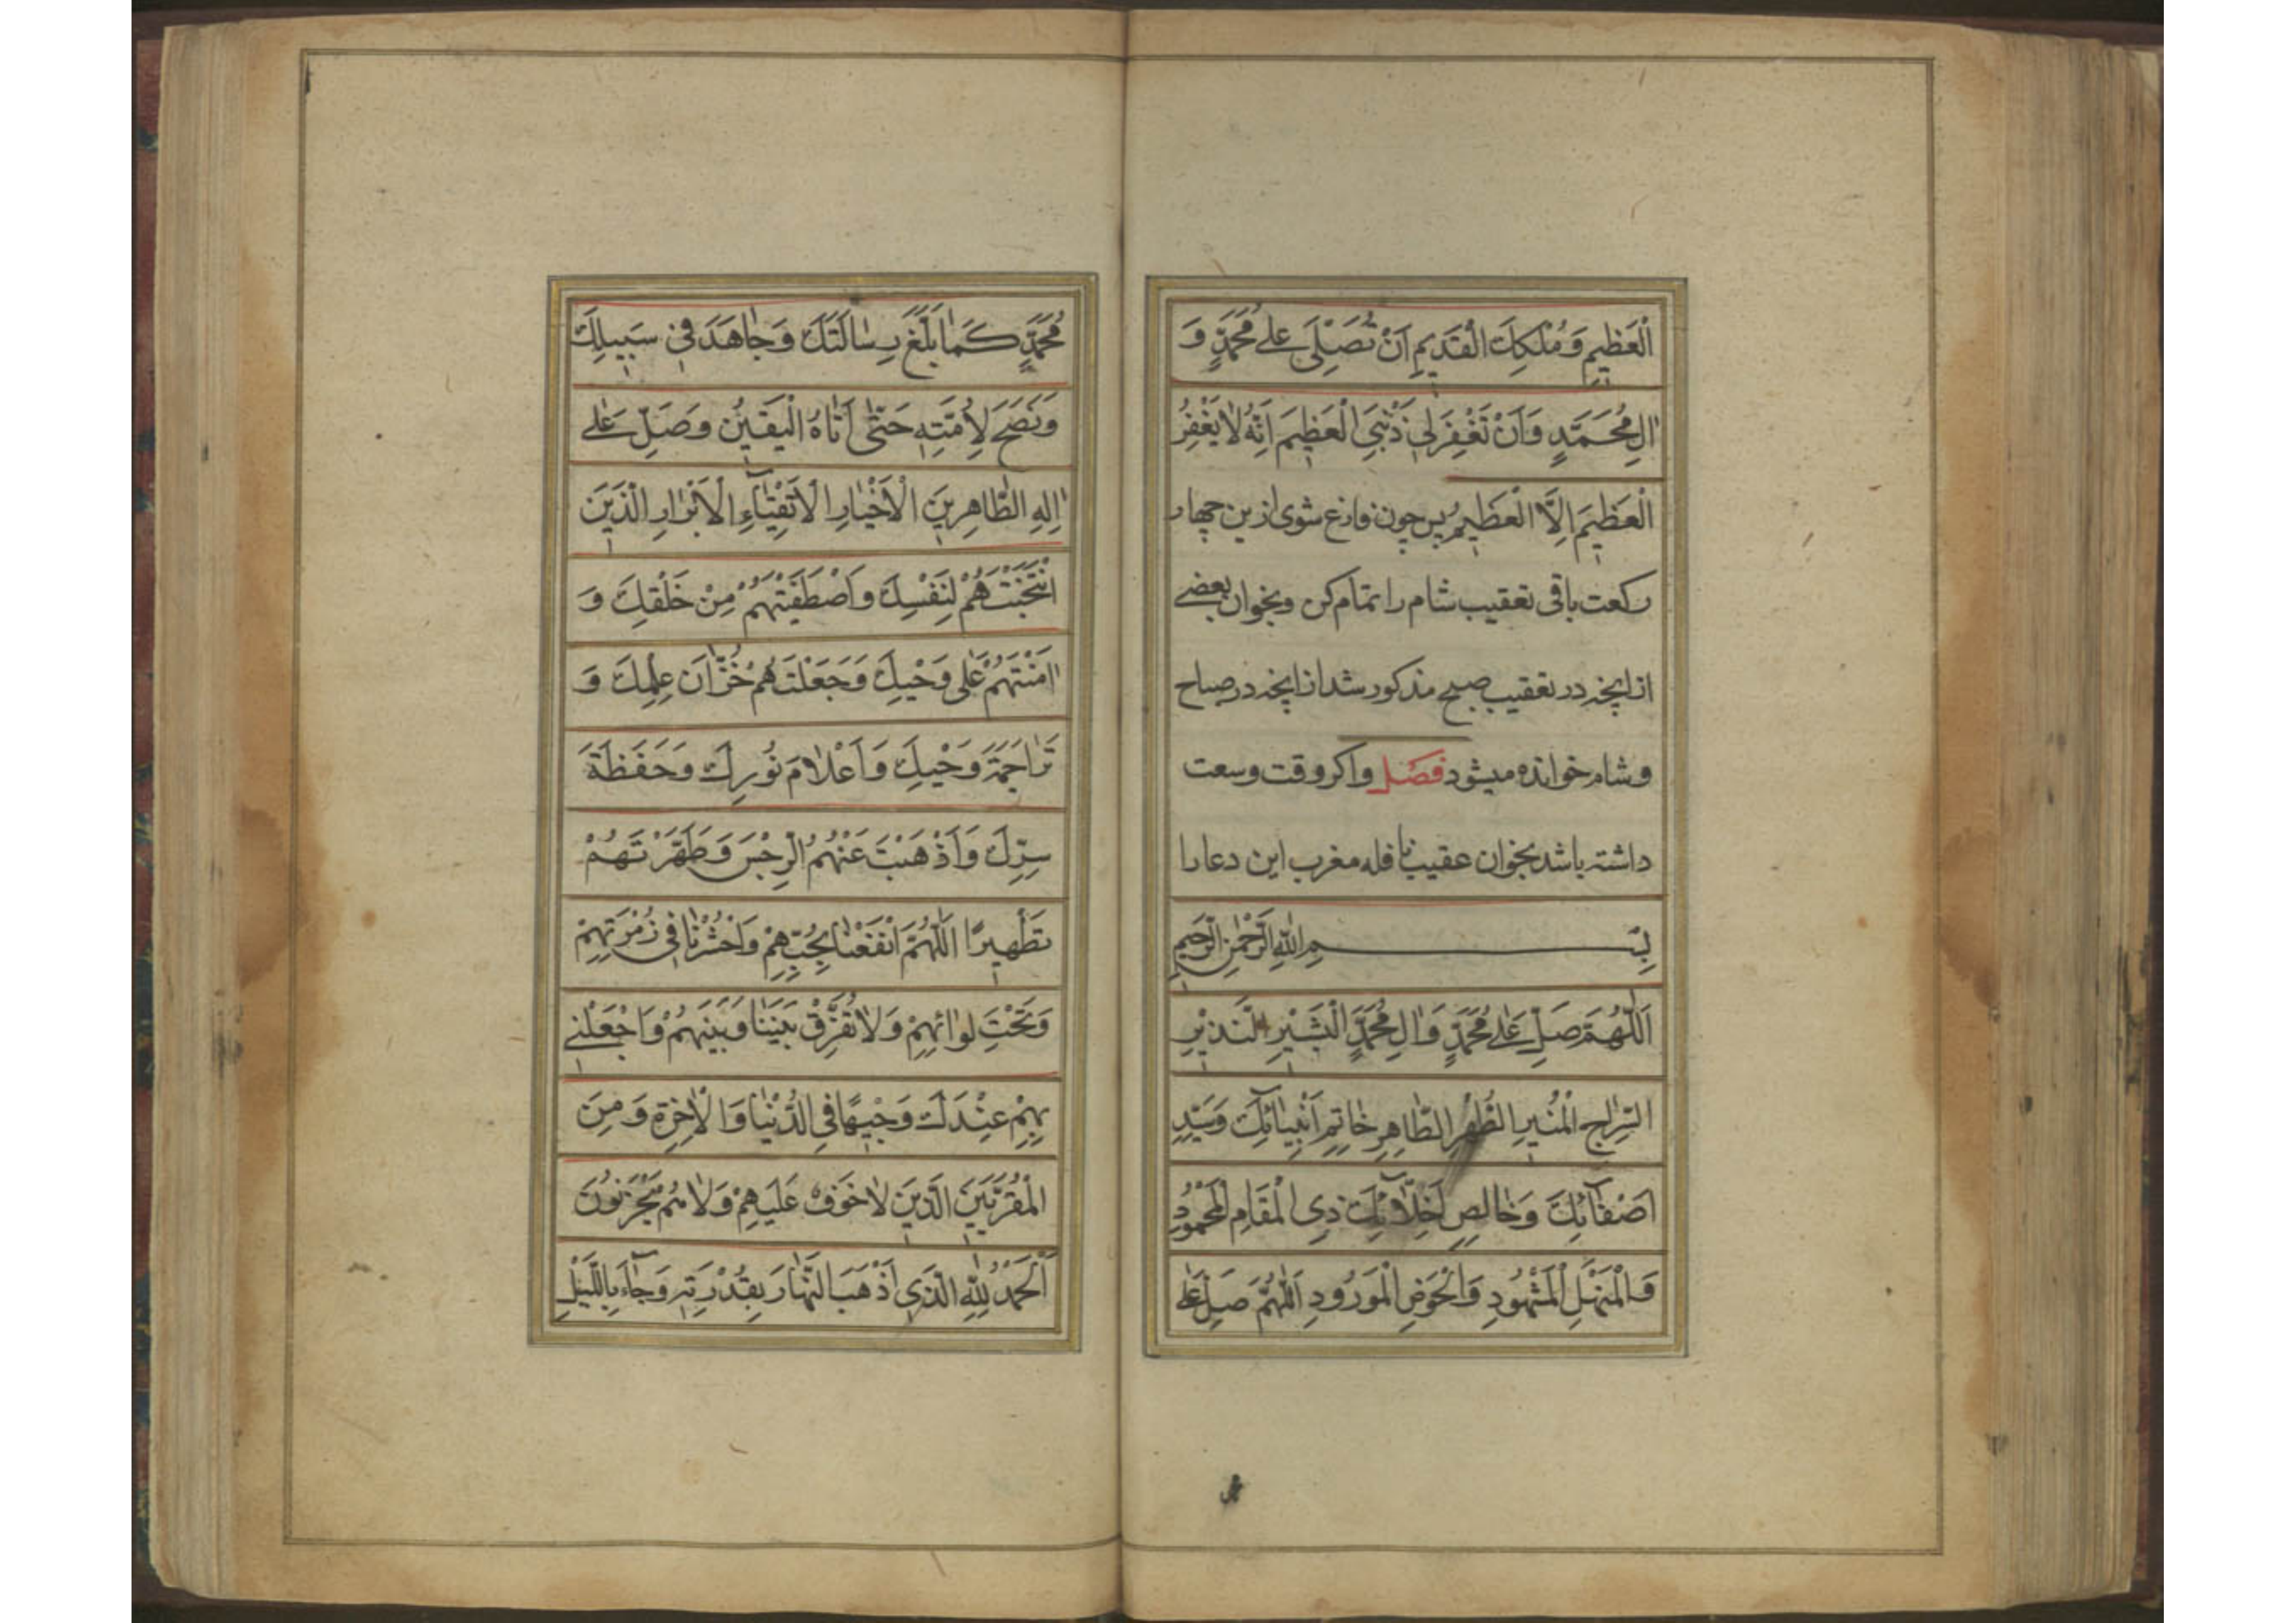 الْعَظِيمِ وَمُلْكِكَ الْقَدِيمِ اَنْ تُصَلِّىَ عَلى مُحَمَّدٍ وَ
اٰلِ مُحَمَّدٍ وَاَنْ تَغْفِرَ لِى ذَنْبِىَ الْعَظِيمَ اِنَّهُ لَا يَغْفِرُ
الْعَظِيمَ اِلَّا الْعَظِيمُ پس چون فارغ شوى ازين چهار
ركعت باقى تعقيب شام را تمام كن وبخوان بعضے
از انچه در تعقيب صبح مذكور شد از انچه در صباح
وشام خوانده ميشود فصل واكر وقت وسعت
داشته باشد بخوان عقيب نافله مغرب اين دعا را
بِسْمِ اللهِ الرَّحْمٰنِ الرَّحِيمِ
اَللّٰهُمَّ صَلِّ عَلٰى مُحَمَّدٍ وَاٰلِ مُحَمَّدٍ الْبَشِيْرِ النَّذِيْرِ
السِّرَاجِ الْمُنِيرِ الطُّهْرِ الطَّاهِرِ خَاتِمِ اَنْبِيَائِكَ وَسَيِّدِ
اَصْفِيَآئِكَ وَخَالِصِ اَخِلَّآئِكَ ذِى الْمَقَامِ الْمَحْمُودِ
وَالْمَنْهَلِ الْمَشْهُودِ وَالْحَوْضِ الْمَوْرُودِ اَللّٰهُمَّ صَلِّ عَلٰى
مُحَمَّدٍ كَمَا بَلَّغَ رِسَالَتَكَ وَجَاهَدَ فِى سَبِيلِكَ
وَنَصَحَ لِاُمَّتِهِ حَتّٰى اَتَاهُ الْيَقِينُ وَصَلِّ عَلٰى
اٰلِهِ الطَّاهِرِينَ الْاَخْيَارِ الْاَتْقِيَآءِ الْاَبْرَارِ الَّذِينَ
انْتَجَبْتَهُمْ لِنَفْسِكَ وَاصْطَفَيْتَهُمْ مِنْ خَلْقِكَ وَ
اٰمَنْتَهُمْ عَلٰى وَحْيِكَ وَجَعَلْتَهُمْ خُزَّانَ عِلْمِكَ وَ
تَرَاجِمَةَ وَحْيِكَ وَاَعْلَامَ نُورِكَ وَحَفَظَةَ
سِرِّكَ وَاَذْهَبْتَ عَنْهُمُ الرِّجْسَ وَطَهَّرْتَهُمْ
تَطْهِيرًا اَللّٰهُمَّ انْفَعْنَا بِحُبِّهِمْ وَاحْشُرْنَا فِى زُمْرَتِهِمْ
وَتَحْتَ لِوَائِهِمْ وَلَا تُفَرِّقْ بَيْنَنَا وَبَيْنَهُمْ وَاجْعَلْنِى
بِهِمْ عِنْدَكَ وَجِيهًا فِى الدُّنْيَا وَالْاٰخِرَةِ وَمِنَ
الْمُقَرَّبِينَ الَّذِينَ لَا خَوْفٌ عَلَيْهِمْ وَلَا هُمْ يَحْزَنُونَ
اَلْحَمْدُ لِلّٰهِ الَّذِى اَذْهَبَ النَّهَارَ بِقُدْرَتِهِ وَجَآءَ بِاللَّيْلِ